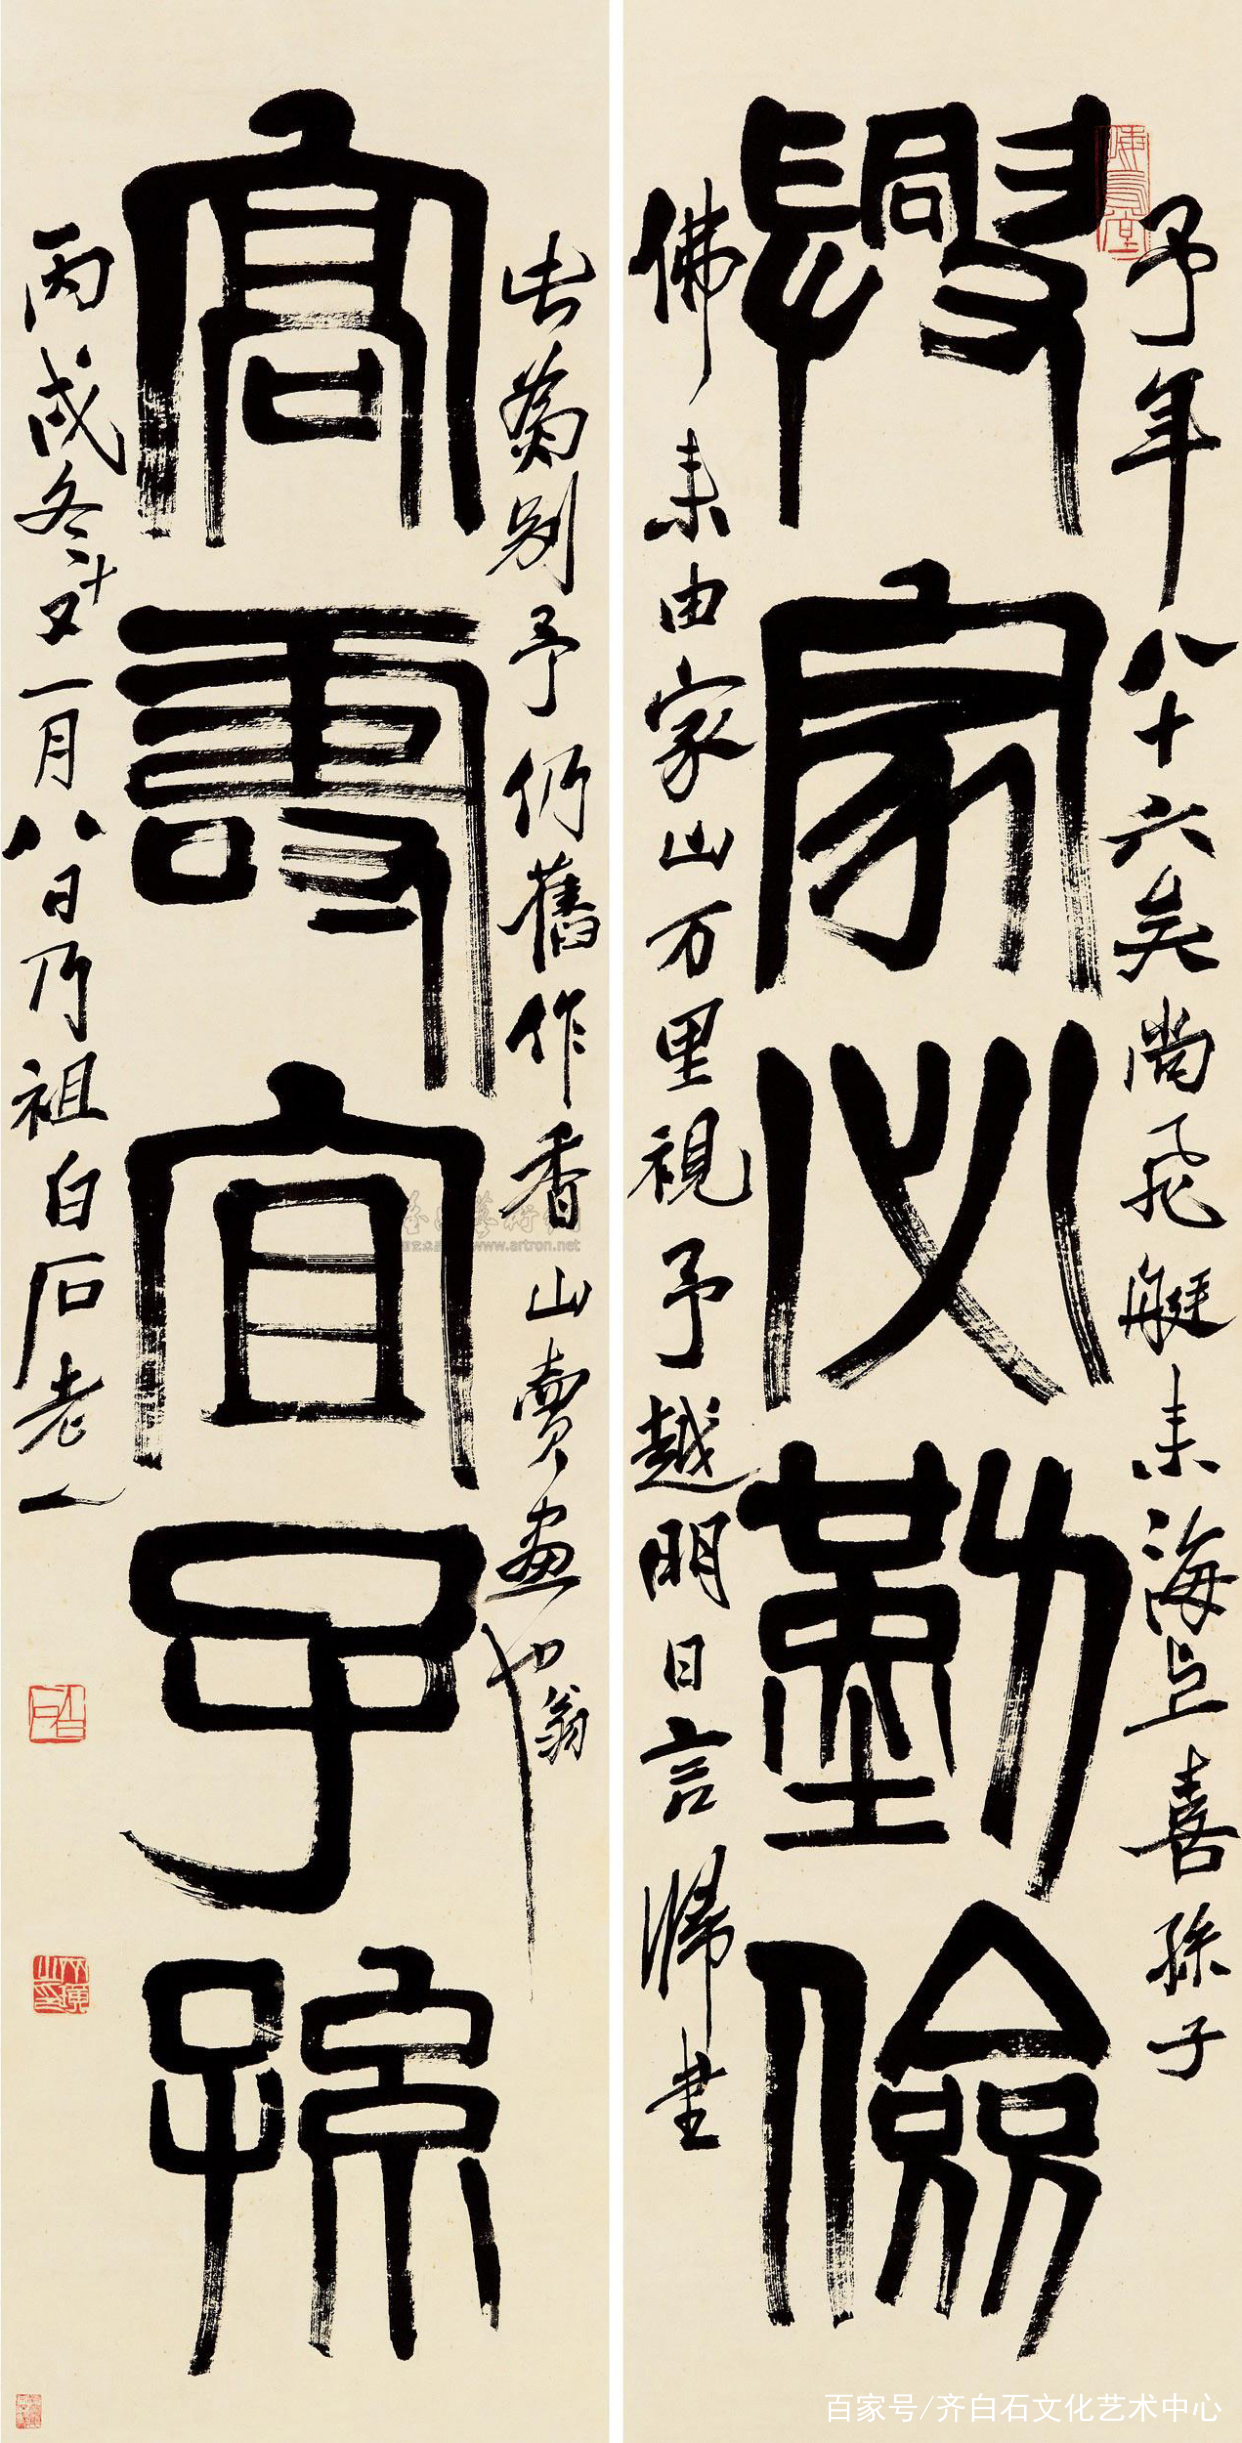 予年八十六矣尚飛艇來海上喜孫子
興家必勤儉
佛來由家山万里視予越明日言歸書
此篇别予仍舊作香山賣畫也翁
高壽宜子孫
丙戌冬十又一月八日乃祖白石老人
白石
www.artron.net
百家号/齐白石文化艺术中心